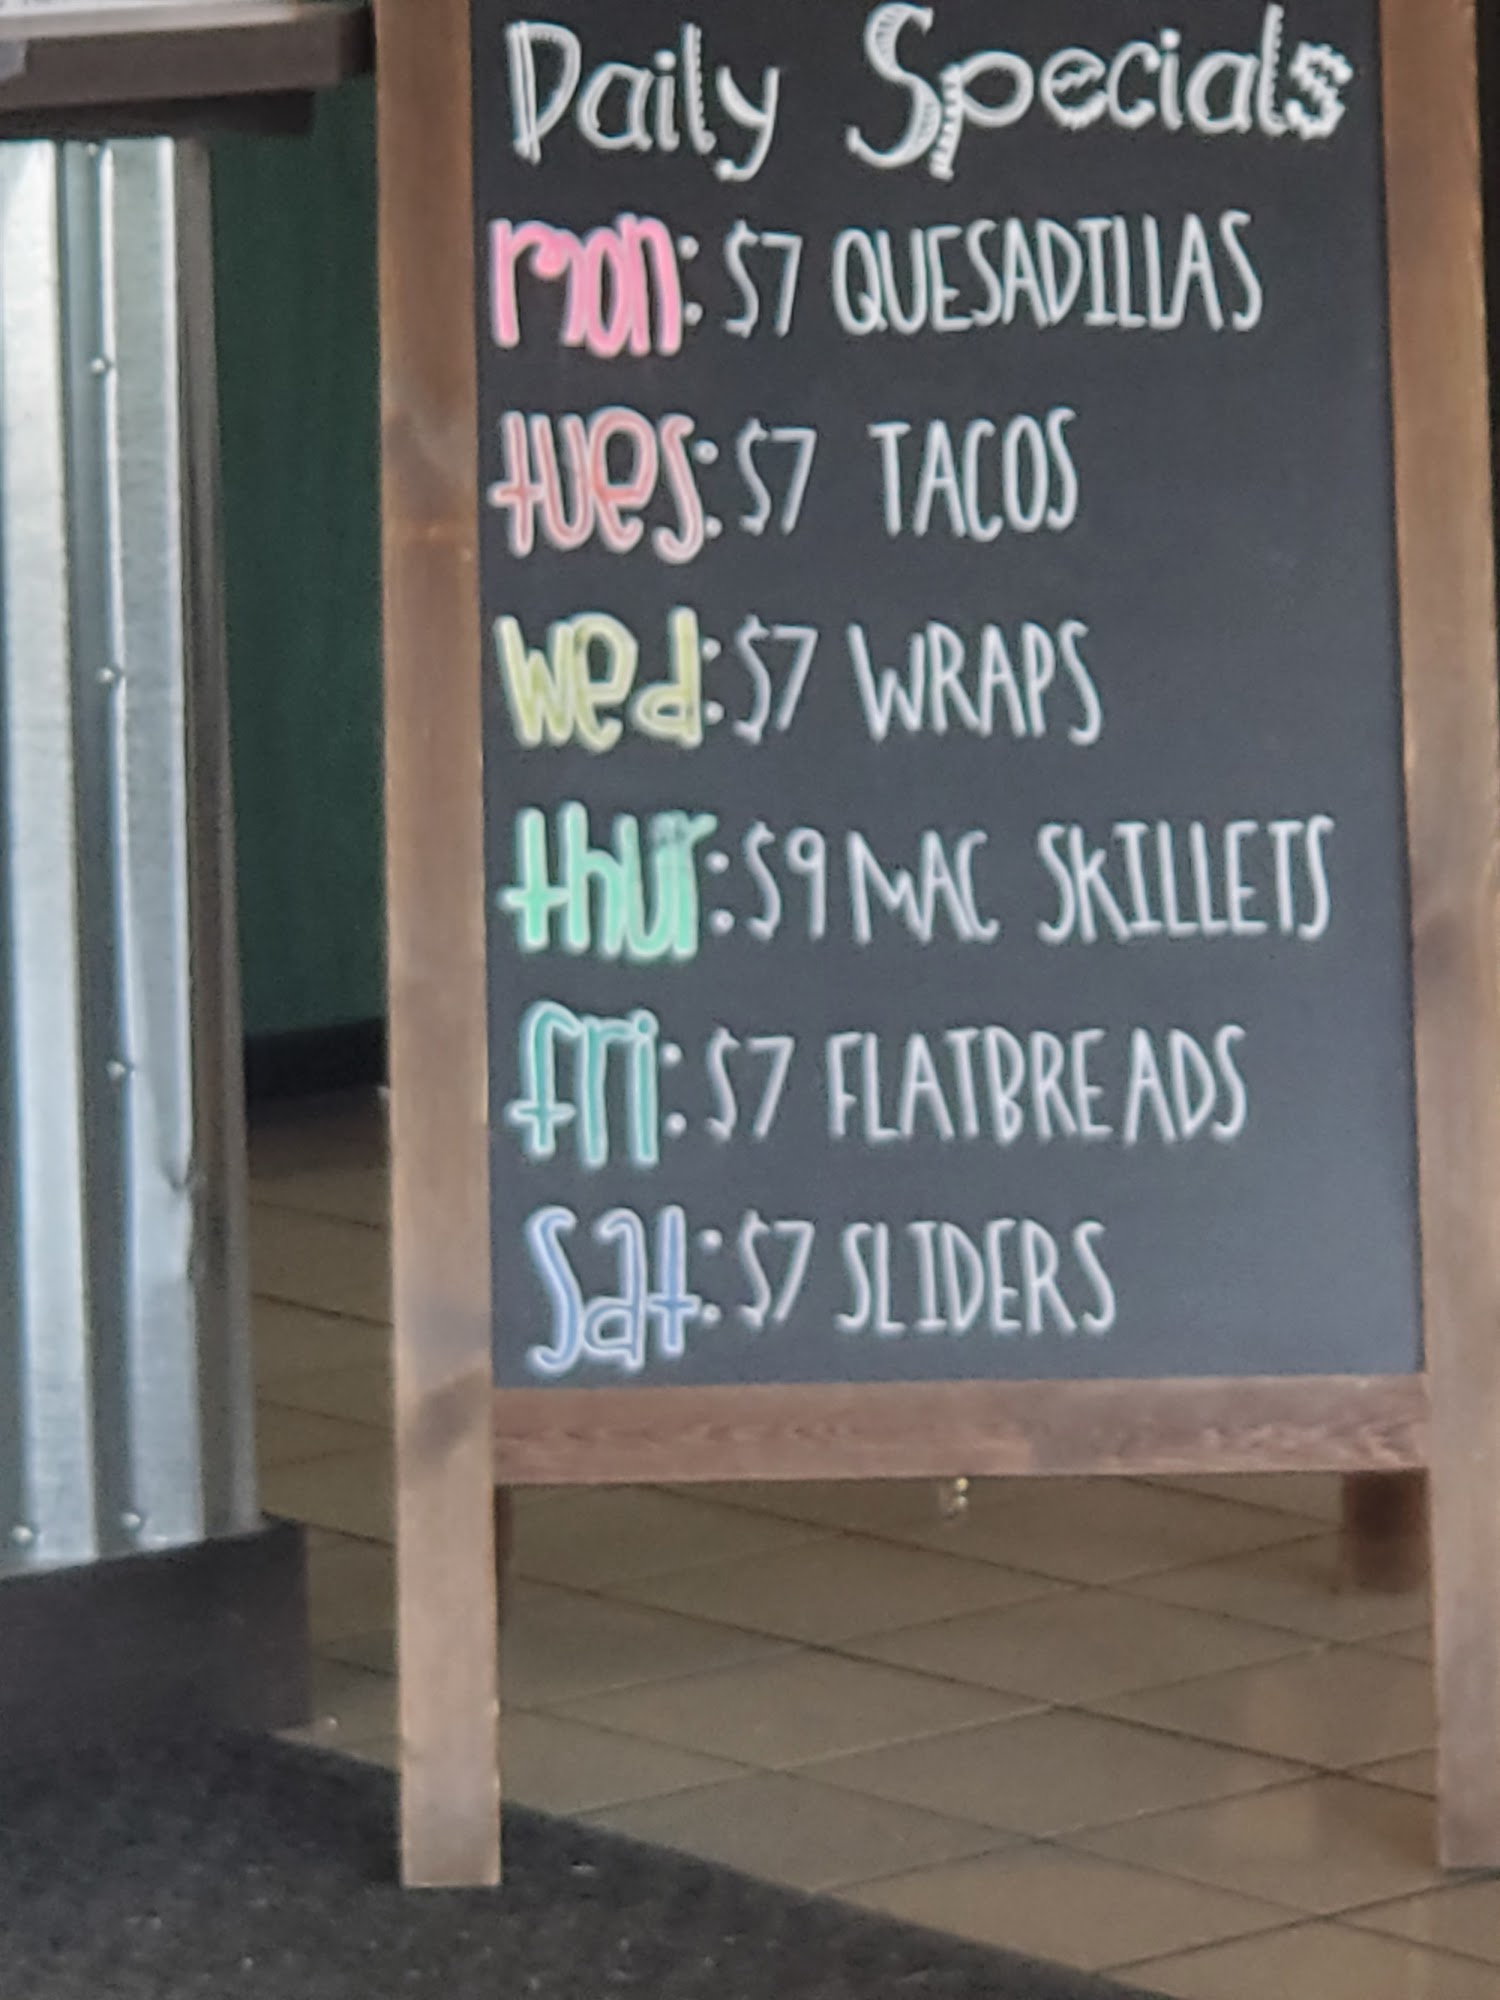 Daily Specials
mon: $7 QUESADILLAS
tues: $7 TACOS
wed: $7 WRAPS
thur: $9 MAC SKILLETS
fri: $7 FLATBREADS
sat: $7 SLIDERS